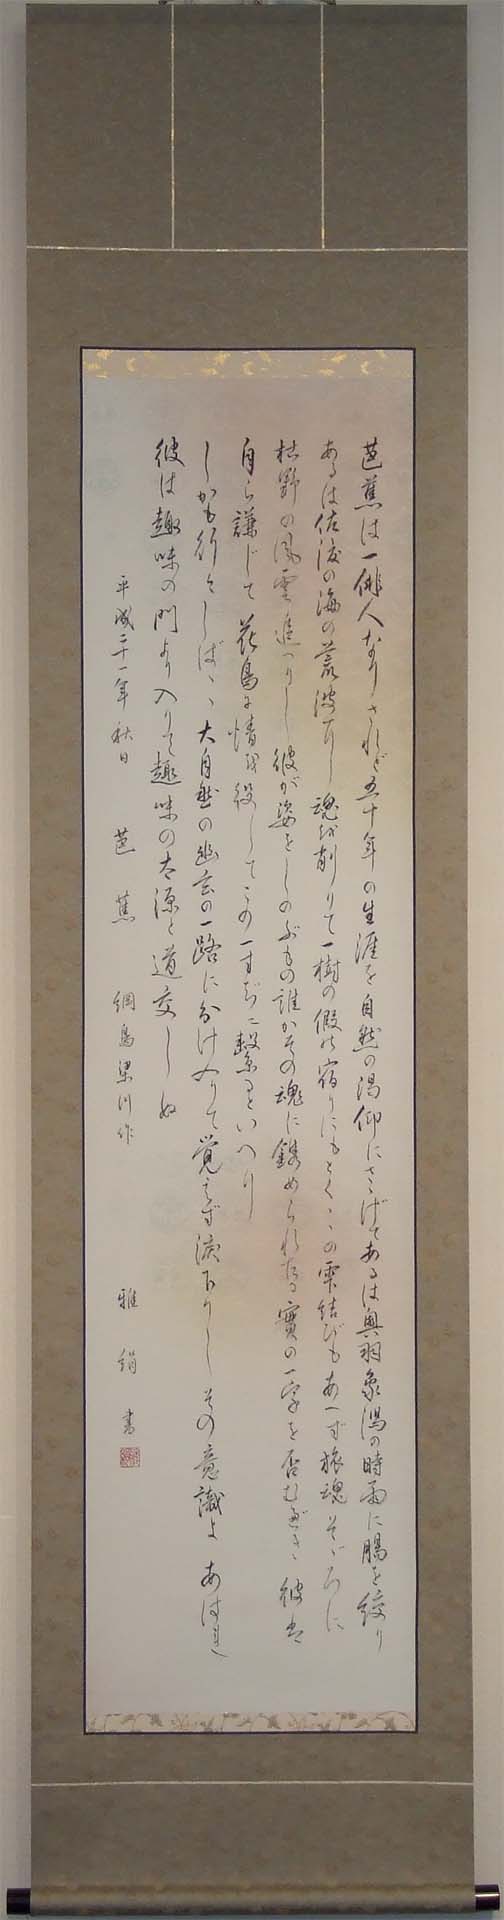 芭蕉は一俳人なりされど五十年の生涯を自然の渇仰にさゝげてあるは奥羽象潟の時雨に腸を絞り
あるは佐渡の海の荒波に魂を削りて一樹の假の宿りにもとくゝの雫結びもあへず旅魂そゞろに
枯野の風雲追へりし彼が姿をしのぶもの誰かその魂に鐫められたる實の一字を否むべき 彼は
自ら謙じて花鳥に情を役してこの一すぢに繋るといへり
しかも行々しばゝゝ大自然の幽玄の一路に分け入りて覚えず涙下りしその意識よ あはれ
彼は趣味の門より入りて趣味の本源と道交しぬ
平成二十一年秋日 芭蕉 綱島梁川作 雅絹書